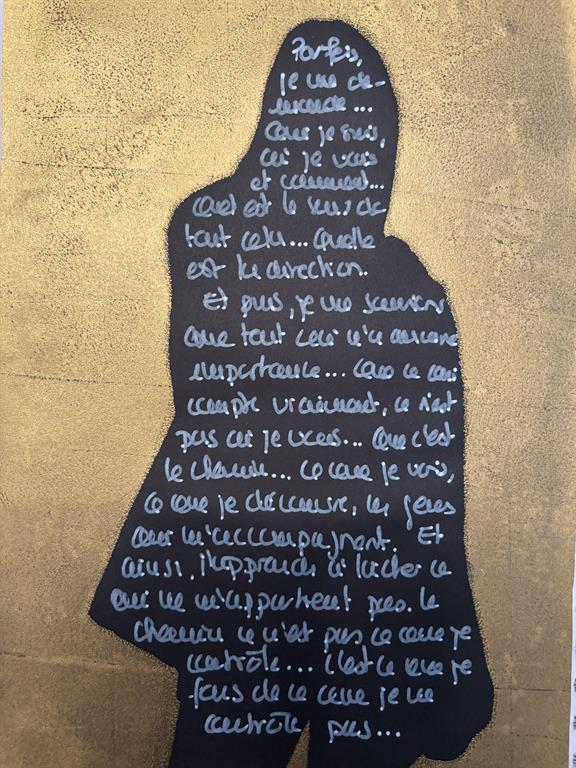 Parfois,
je me de-
mande...
Qui je suis,
où je vais
et comment...
Quel est le sens de
tout cela... Quelle
est la direction.
Et puis, je me souviens
que tout ceci n'a aucune
importance... Que ce qui
compte vraiment, ce n'est
pas où je vais... Que c'est
le chemin... Ce que je vois,
ce que je découvre, les gens
qui m'accompagnent. Et
ainsi, j'apprends à lâcher ce
qui ne m'appartient pas. Le
chemin ce n'est pas ce que je
contrôle... c'est ce que je
fais de ce que je ne
contrôle pas...